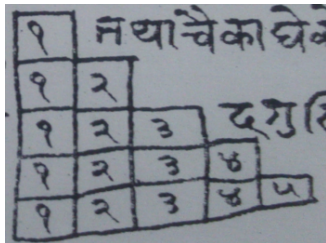 १ न थाचैकाघे
१ २
१ २ ३
१ २ ३ ४
१ २ ३ ४ ५